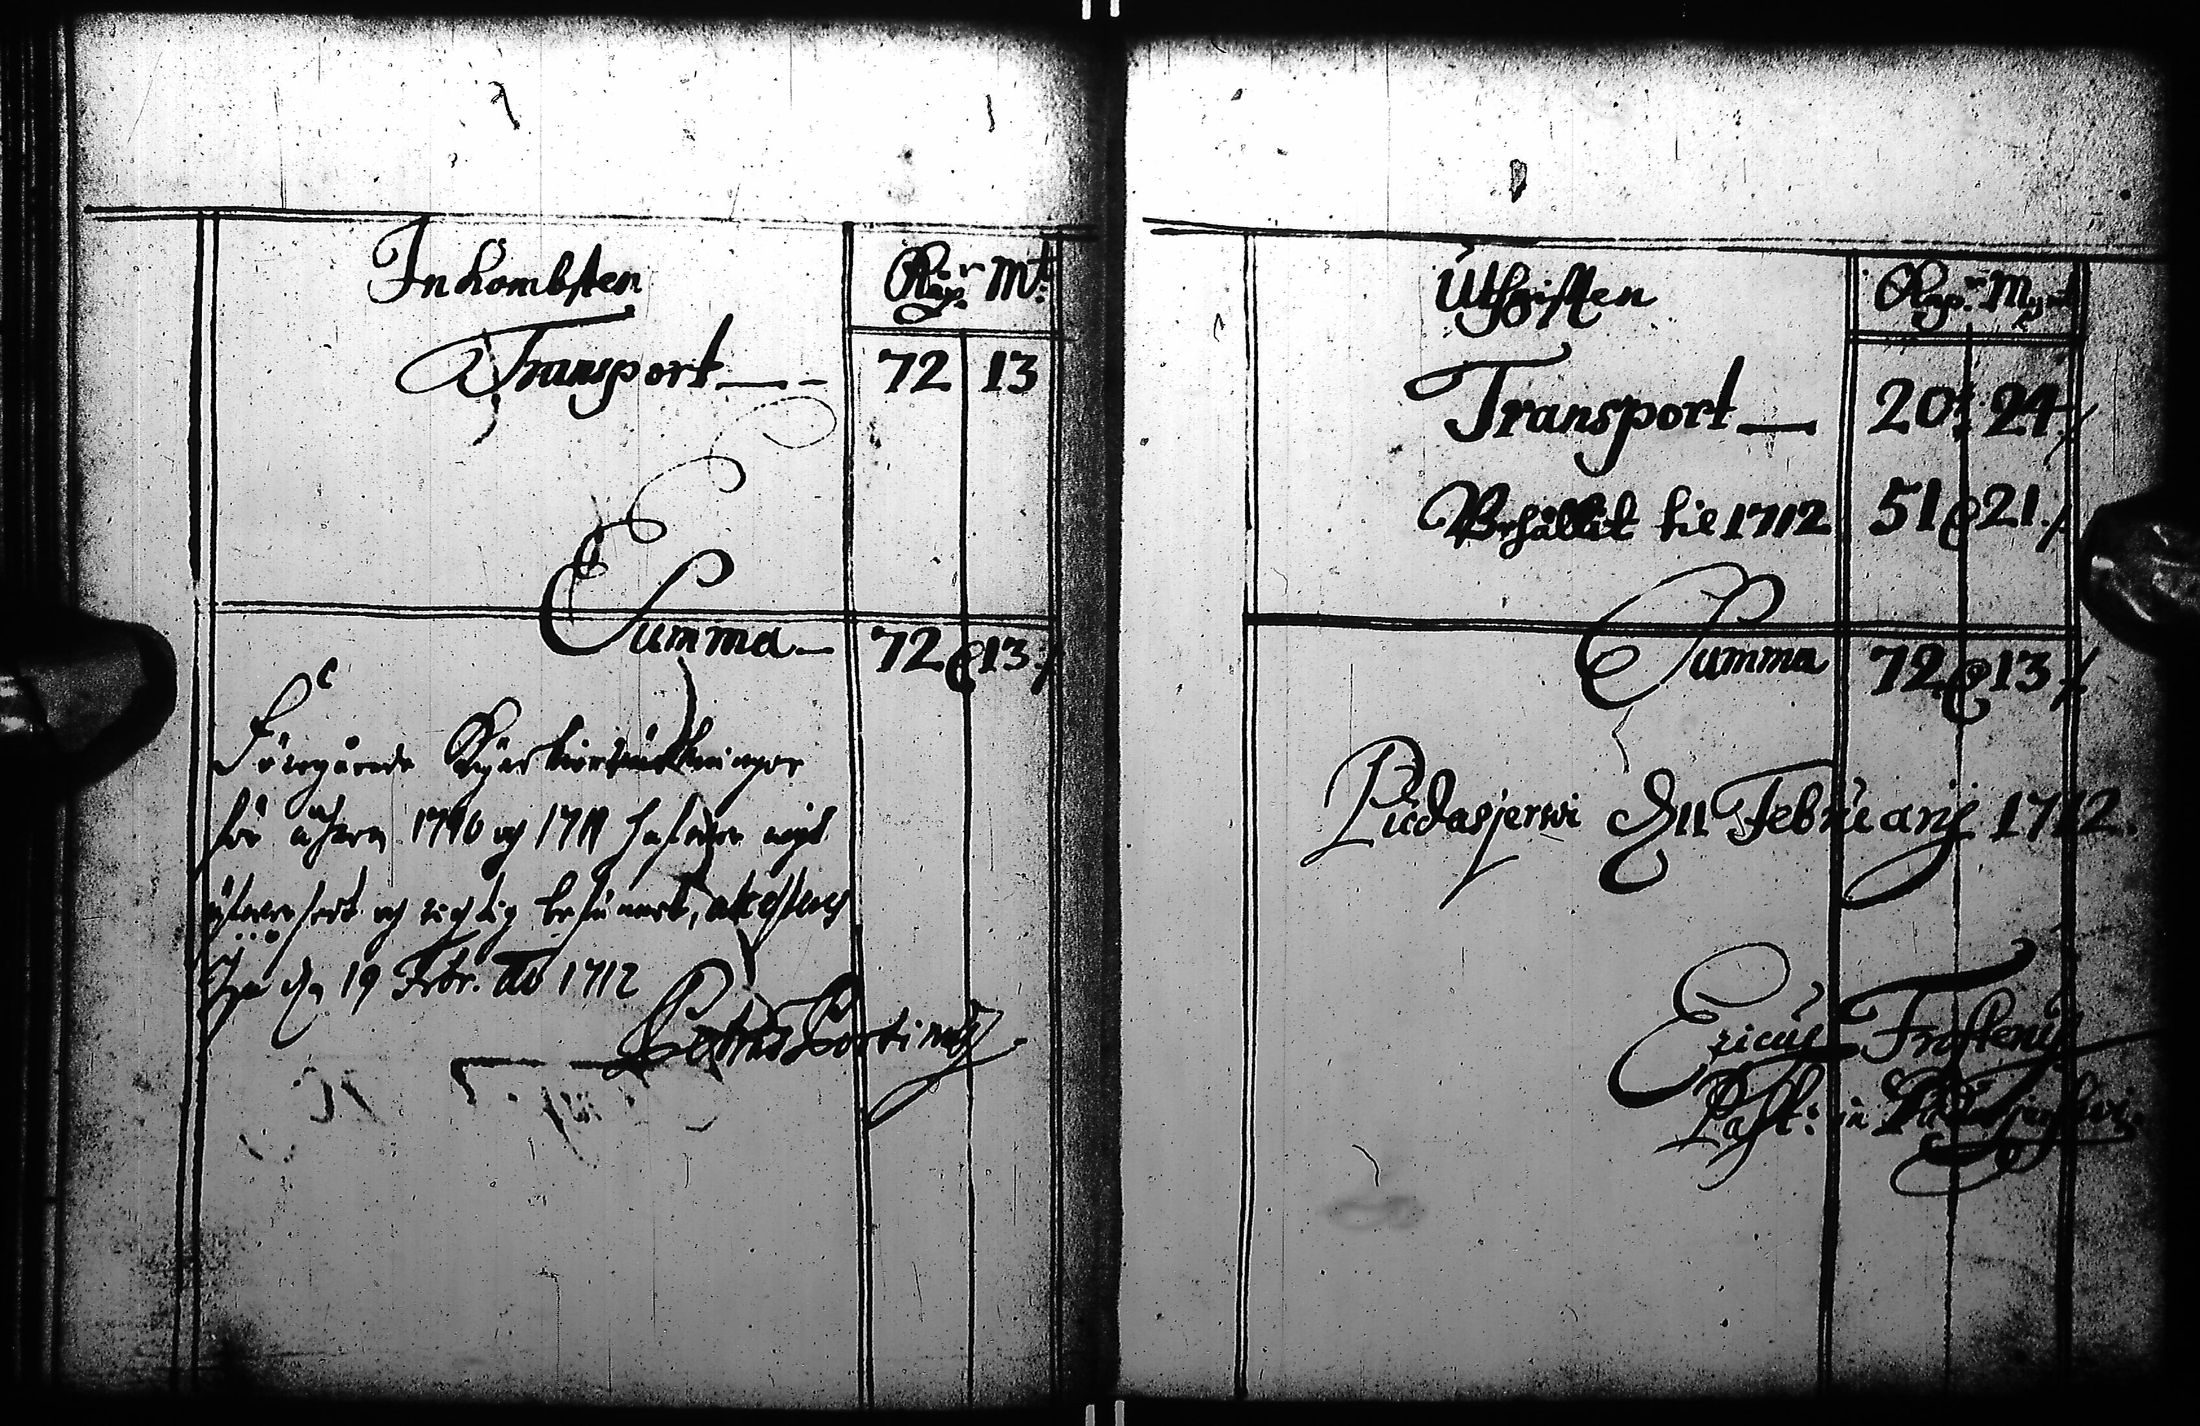 Inkombsten Kop:r Mt.
Transport 72 13
Summa 72 13
Föregående Kyrkioräkningar
för åhren 1710 och 1711 hafwer jagh
öfwersedt och richtig befunnit, attesteras
Ijo den 19 Febr. Ao 1712
Petrus Portinus
Uthgifften Kop:r Mynt
Transport 20: 24
Behållit til 1712 51 21
Summa 72 13
Pudasjerwi d 11 Februarij 1712.
Ericus Frostenius
Past: in Pudasjerwi.